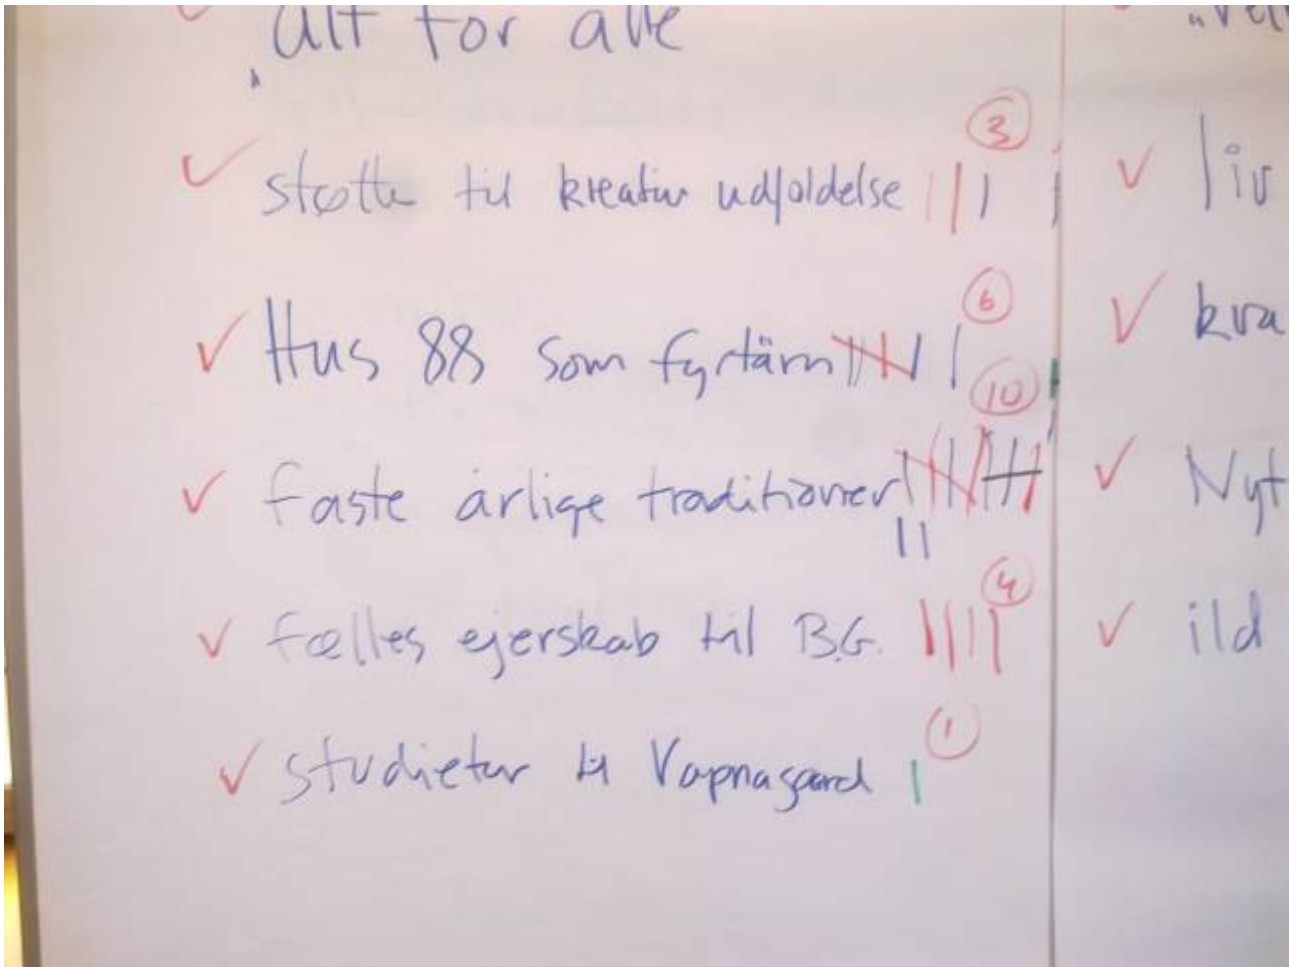 alt for alle
støtte til kreativ udfoldelse 3
Hus 88 som fyrtårn 6
faste årlige traditioner 10
fælles ejerskab til B.G. 4
studietur til Vapnagaard 1
liv
kva
Nyt
ild